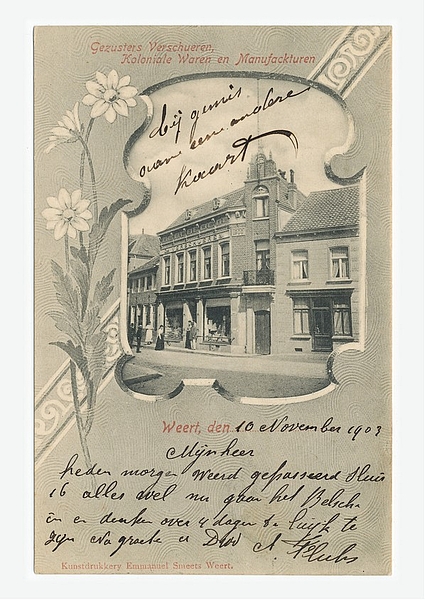 Gezusters Verschueren,
Koloniale Waren en Manufackturen
bij gemis
van een andere
kaart
Weert, den 10 November 1903
Mijnheer
heden morgen Weerd gepasseerd Sluis
16 alles wel nu gaan het Belsch
in en denken over 4 dagen te Luyk te
zijn Na groete
Kunstdrukkery Emmanuel Smeets Weert.